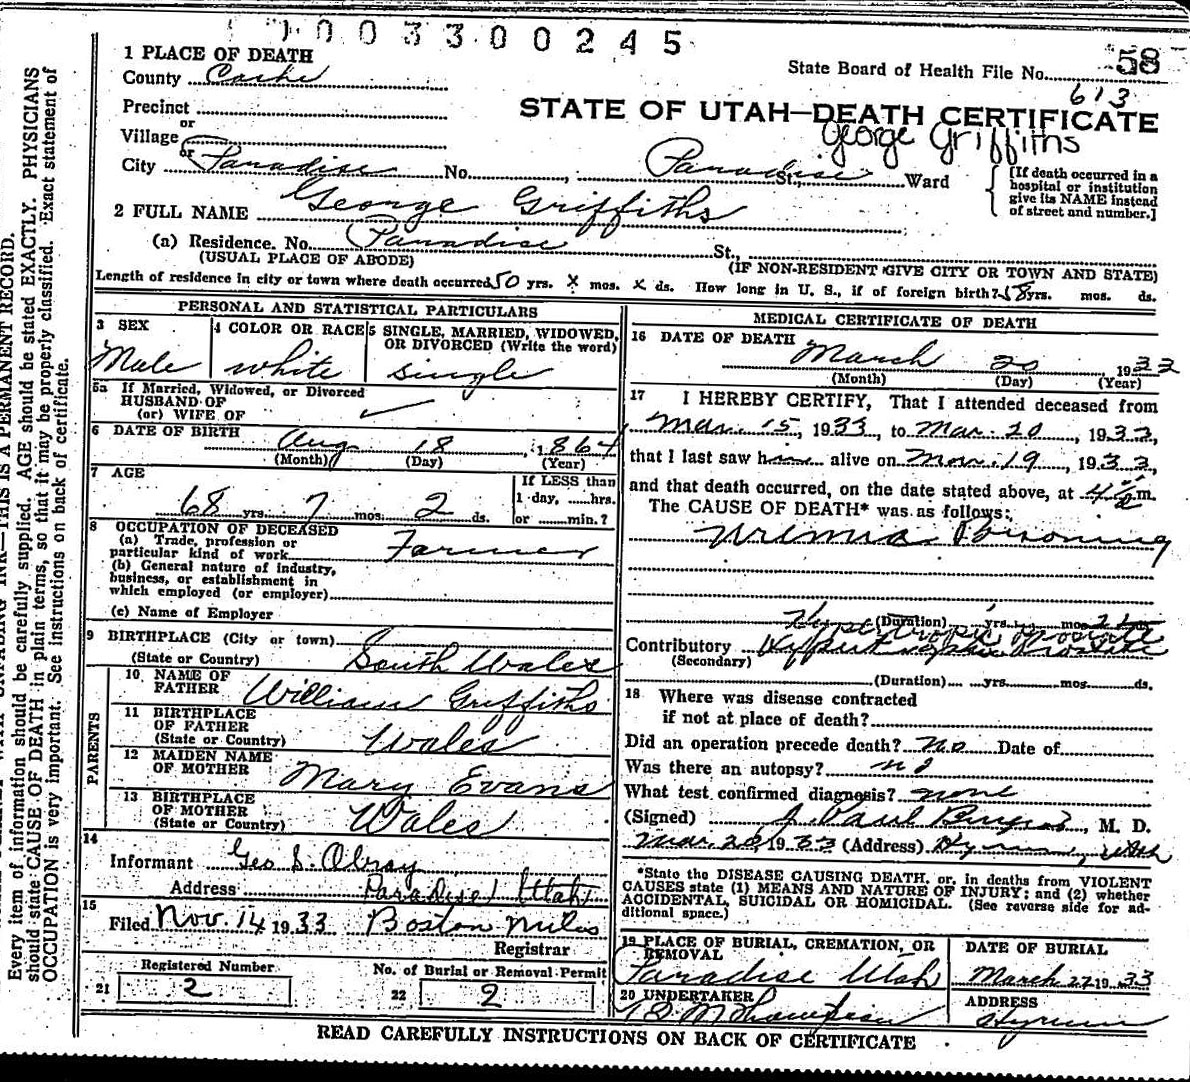 1003300245
1 PLACE OF DEATH
County Cache
State Board of Health File No. 58
613
Precinct
or
STATE OF UTAH—DEATH CERTIFICATE
George Griffiths
Village
or
City Paradise No. Paradise St., Ward
[If death occurred in a hospital or institution give its NAME instead of street and number.]
2 FULL NAME George Griffiths
(a) Residence. No. Paradise St.,
(USUAL PLACE OF ABODE) (IF NON-RESIDENT GIVE CITY OR TOWN AND STATE)
Length of residence in city or town where death occurred 50 yrs. x mos. x ds. How long in U. S., if of foreign birth? 58 yrs. mos. ds.
PERSONAL AND STATISTICAL PARTICULARS
3 SEX 4 COLOR OR RACE 5 SINGLE, MARRIED, WIDOWED, OR DIVORCED (Write the word)
Male white single
5a If Married, Widowed, or Divorced
HUSBAND OF
(or) WIFE OF
6 DATE OF BIRTH Aug 18, 1864
(Month) (Day) (Year)
7 AGE If LESS than
68 yrs. 7 mos. 2 ds. 1 day, hrs.
or min.?
8 OCCUPATION OF DECEASED
(a) Trade, profession or
particular kind of work Farmer
(b) General nature of industry,
business, or establishment in
which employed (or employer)
(c) Name of Employer
9 BIRTHPLACE (City or town)
(State or Country) South Wales
PARENTS
10 NAME OF
FATHER William Griffiths
11 BIRTHPLACE
OF FATHER
(State or Country) Wales
12 MAIDEN NAME
OF MOTHER Mary Evans
13 BIRTHPLACE
OF MOTHER
(State or Country) Wales
14
Informant Geo S. Obray
Address Paradise Utah
15
Filed Nov. 14 1933 Boston Miles
Registrar
Registered Number No. of Burial or Removal Permit
21 2 22 2
MEDICAL CERTIFICATE OF DEATH
16 DATE OF DEATH
March 20, 1933
(Month) (Day) (Year)
17 I HEREBY CERTIFY, That I attended deceased from
Mar. 15, 1933, to Mar. 20, 1933,
that I last saw him alive on Mar. 19, 1933,
and that death occurred, on the date stated above, at m.
The CAUSE OF DEATH* was as follows:
Uremia Poisoning
(Duration) yrs. mos.
Hypertropic prostate
Contributory Hypertrophic Prostate
(Secondary)
(Duration) yrs. mos. ds.
18 Where was disease contracted
if not at place of death?
Did an operation precede death? no Date of
Was there an autopsy? no
What test confirmed diagnosis? none
(Signed) J. Paul, M. D.
Mar. 20, 1933 (Address) Hyrum, Utah
*State the DISEASE CAUSING DEATH, or, in deaths from VIOLENT
CAUSES state (1) MEANS AND NATURE OF INJURY; and (2) whether
ACCIDENTAL, SUICIDAL OR HOMICIDAL. (See reverse side for ad-
ditional space.)
19 PLACE OF BURIAL, CREMATION, OR REMOVAL DATE OF BURIAL
Paradise Utah March 22 1933
20 UNDERTAKER ADDRESS
Thompson Hyrum
READ CAREFULLY INSTRUCTIONS ON BACK OF CERTIFICATE
THIS IS A PERMANENT RECORD.
Every item of information should be carefully supplied. AGE should be stated EXACTLY. PHYSICIANS
should state CAUSE OF DEATH in plain terms, so that it may be properly classified. Exact statement of
OCCUPATION is very important. See instructions on back of certificate.